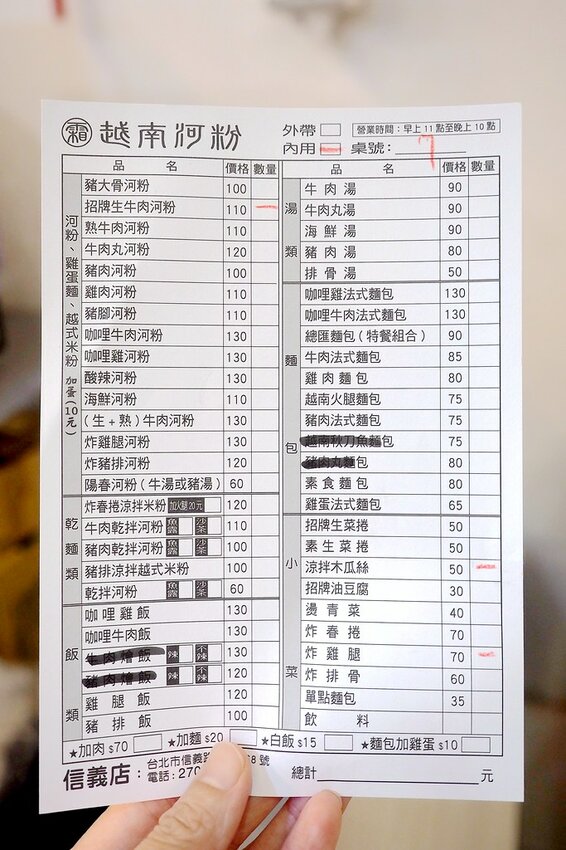 霜 越南河粉
外帶 營業時間：早上11點至晚上10點
內用 桌號：7
品名 價格 數量
河粉、雞蛋麵、越式米粉 加蛋(10元)
豬大骨河粉 100
招牌生牛肉河粉 110
熟牛肉河粉 110
牛肉丸河粉 120
豬肉河粉 100
雞肉河粉 110
豬腳河粉 110
咖哩牛肉河粉 130
咖哩雞河粉 130
酸辣河粉 130
海鮮河粉 110
(生+熟)牛肉河粉 130
炸雞腿河粉 130
炸豬排河粉 120
陽春河粉(牛湯或豬湯) 60
乾麵類
炸春捲涼拌米粉 加火腿20元 120
牛肉乾拌河粉 魚露 沙茶 110
豬肉乾拌河粉 魚露 沙茶 100
豬排涼拌越式米粉 100
乾拌河粉 魚露 沙茶 60
飯類
咖哩雞飯 130
咖哩牛肉飯 130
牛肉燴飯 辣 不辣 130
豬肉燴飯 辣 不辣 120
雞腿飯 120
豬排飯 100
品名 價格 數量
湯類
牛肉湯 90
牛肉丸湯 90
海鮮湯 90
豬肉湯 80
排骨湯 50
麵包
咖哩雞法式麵包 130
咖哩牛肉法式麵包 130
總匯麵包(特餐組合) 90
牛肉法式麵包 85
雞肉麵包 80
越南火腿麵包 75
豬肉法式麵包 75
越南秋刀魚麵包 75
豬肉丸麵包 80
素食麵包 80
雞蛋法式麵包 65
小菜
招牌生菜捲 50
素生菜捲 50
涼拌木瓜絲 50
招牌油豆腐 30
燙青菜 40
炸春捲 70
炸雞腿 70
炸排骨 60
單點麵包 35
飲料
★加肉$70 ★加麵$20 ★白飯$15 ★麵包加雞蛋$10
信義店：台北市信義路 8號
電話：270
總計 元